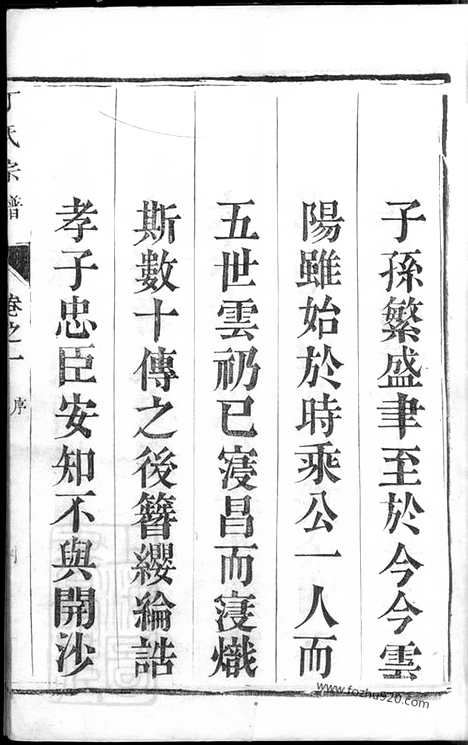 子孫繁盛聿至於今今雲
陽雖始於時乘公一人而
五世雲礽已寖昌而寖熾
斯數十傳之後簪纓綸誥
孝子忠臣安知不與開沙
丁氏宗譜
卷之一
序
www.fozhu920.com